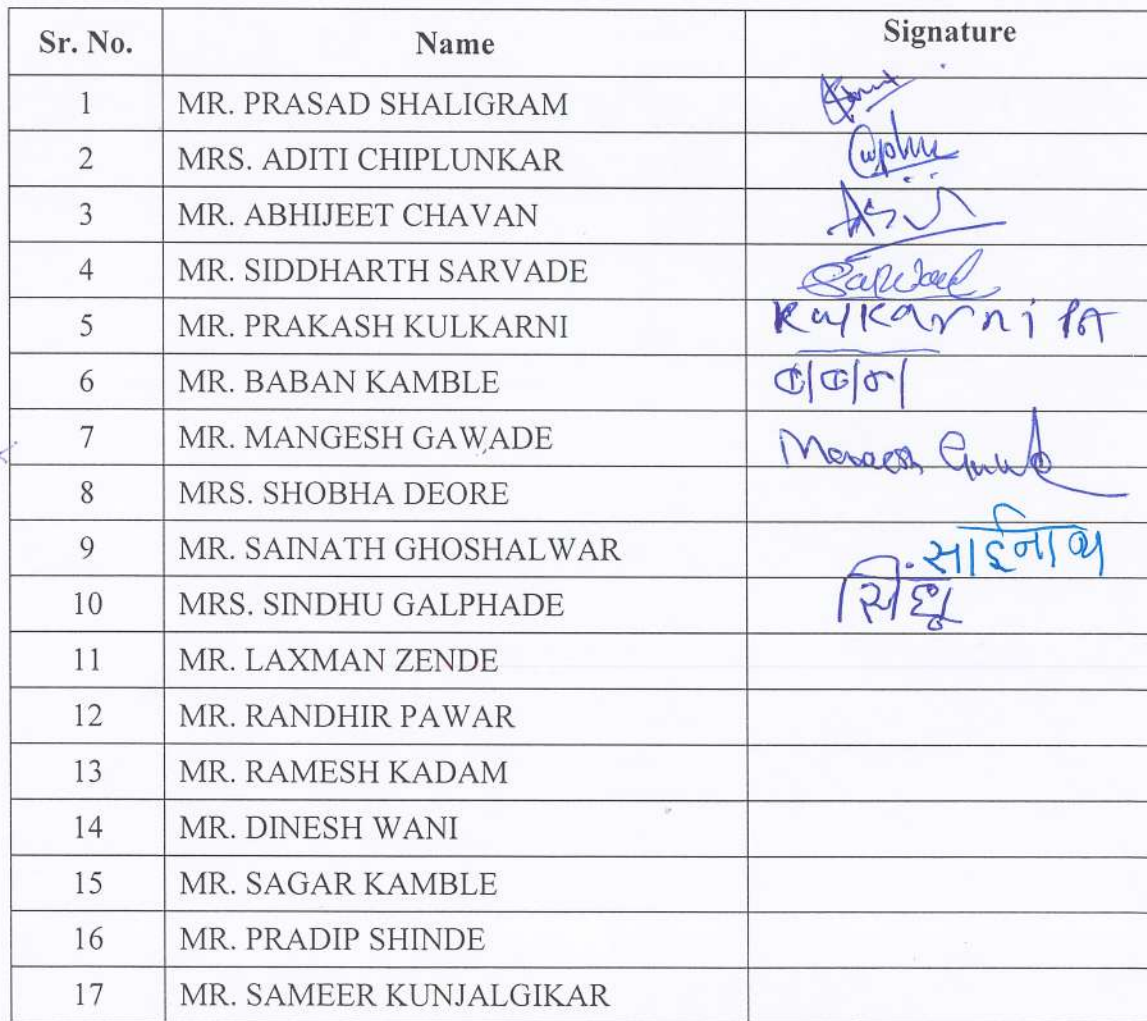 Sr. No. Name Signature
1 MR. PRASAD SHALIGRAM
2 MRS. ADITI CHIPLUNKAR
3 MR. ABHIJEET CHAVAN
4 MR. SIDDHARTH SARVADE
5 MR. PRAKASH KULKARNI Kulkarni PA
6 MR. BABAN KAMBLE बाबन
7 MR. MANGESH GAWADE
8 MRS. SHOBHA DEORE
9 MR. SAINATH GHOSHALWAR साईनाथ
10 MRS. SINDHU GALPHADE सिंधू
11 MR. LAXMAN ZENDE
12 MR. RANDHIR PAWAR
13 MR. RAMESH KADAM
14 MR. DINESH WANI
15 MR. SAGAR KAMBLE
16 MR. PRADIP SHINDE
17 MR. SAMEER KUNJALGIKAR